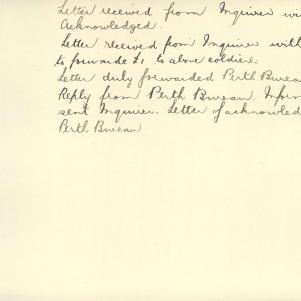 Letter received from Inquirer wi
Acknowledged.
Letter received from Inquirer with
to forwarde £1 to above soldier.
Letter duly forwarded Perth Burea
Reply from Perth Bureau. Infor
sent Inquirer. Letter of acknowled
Perth Bureau